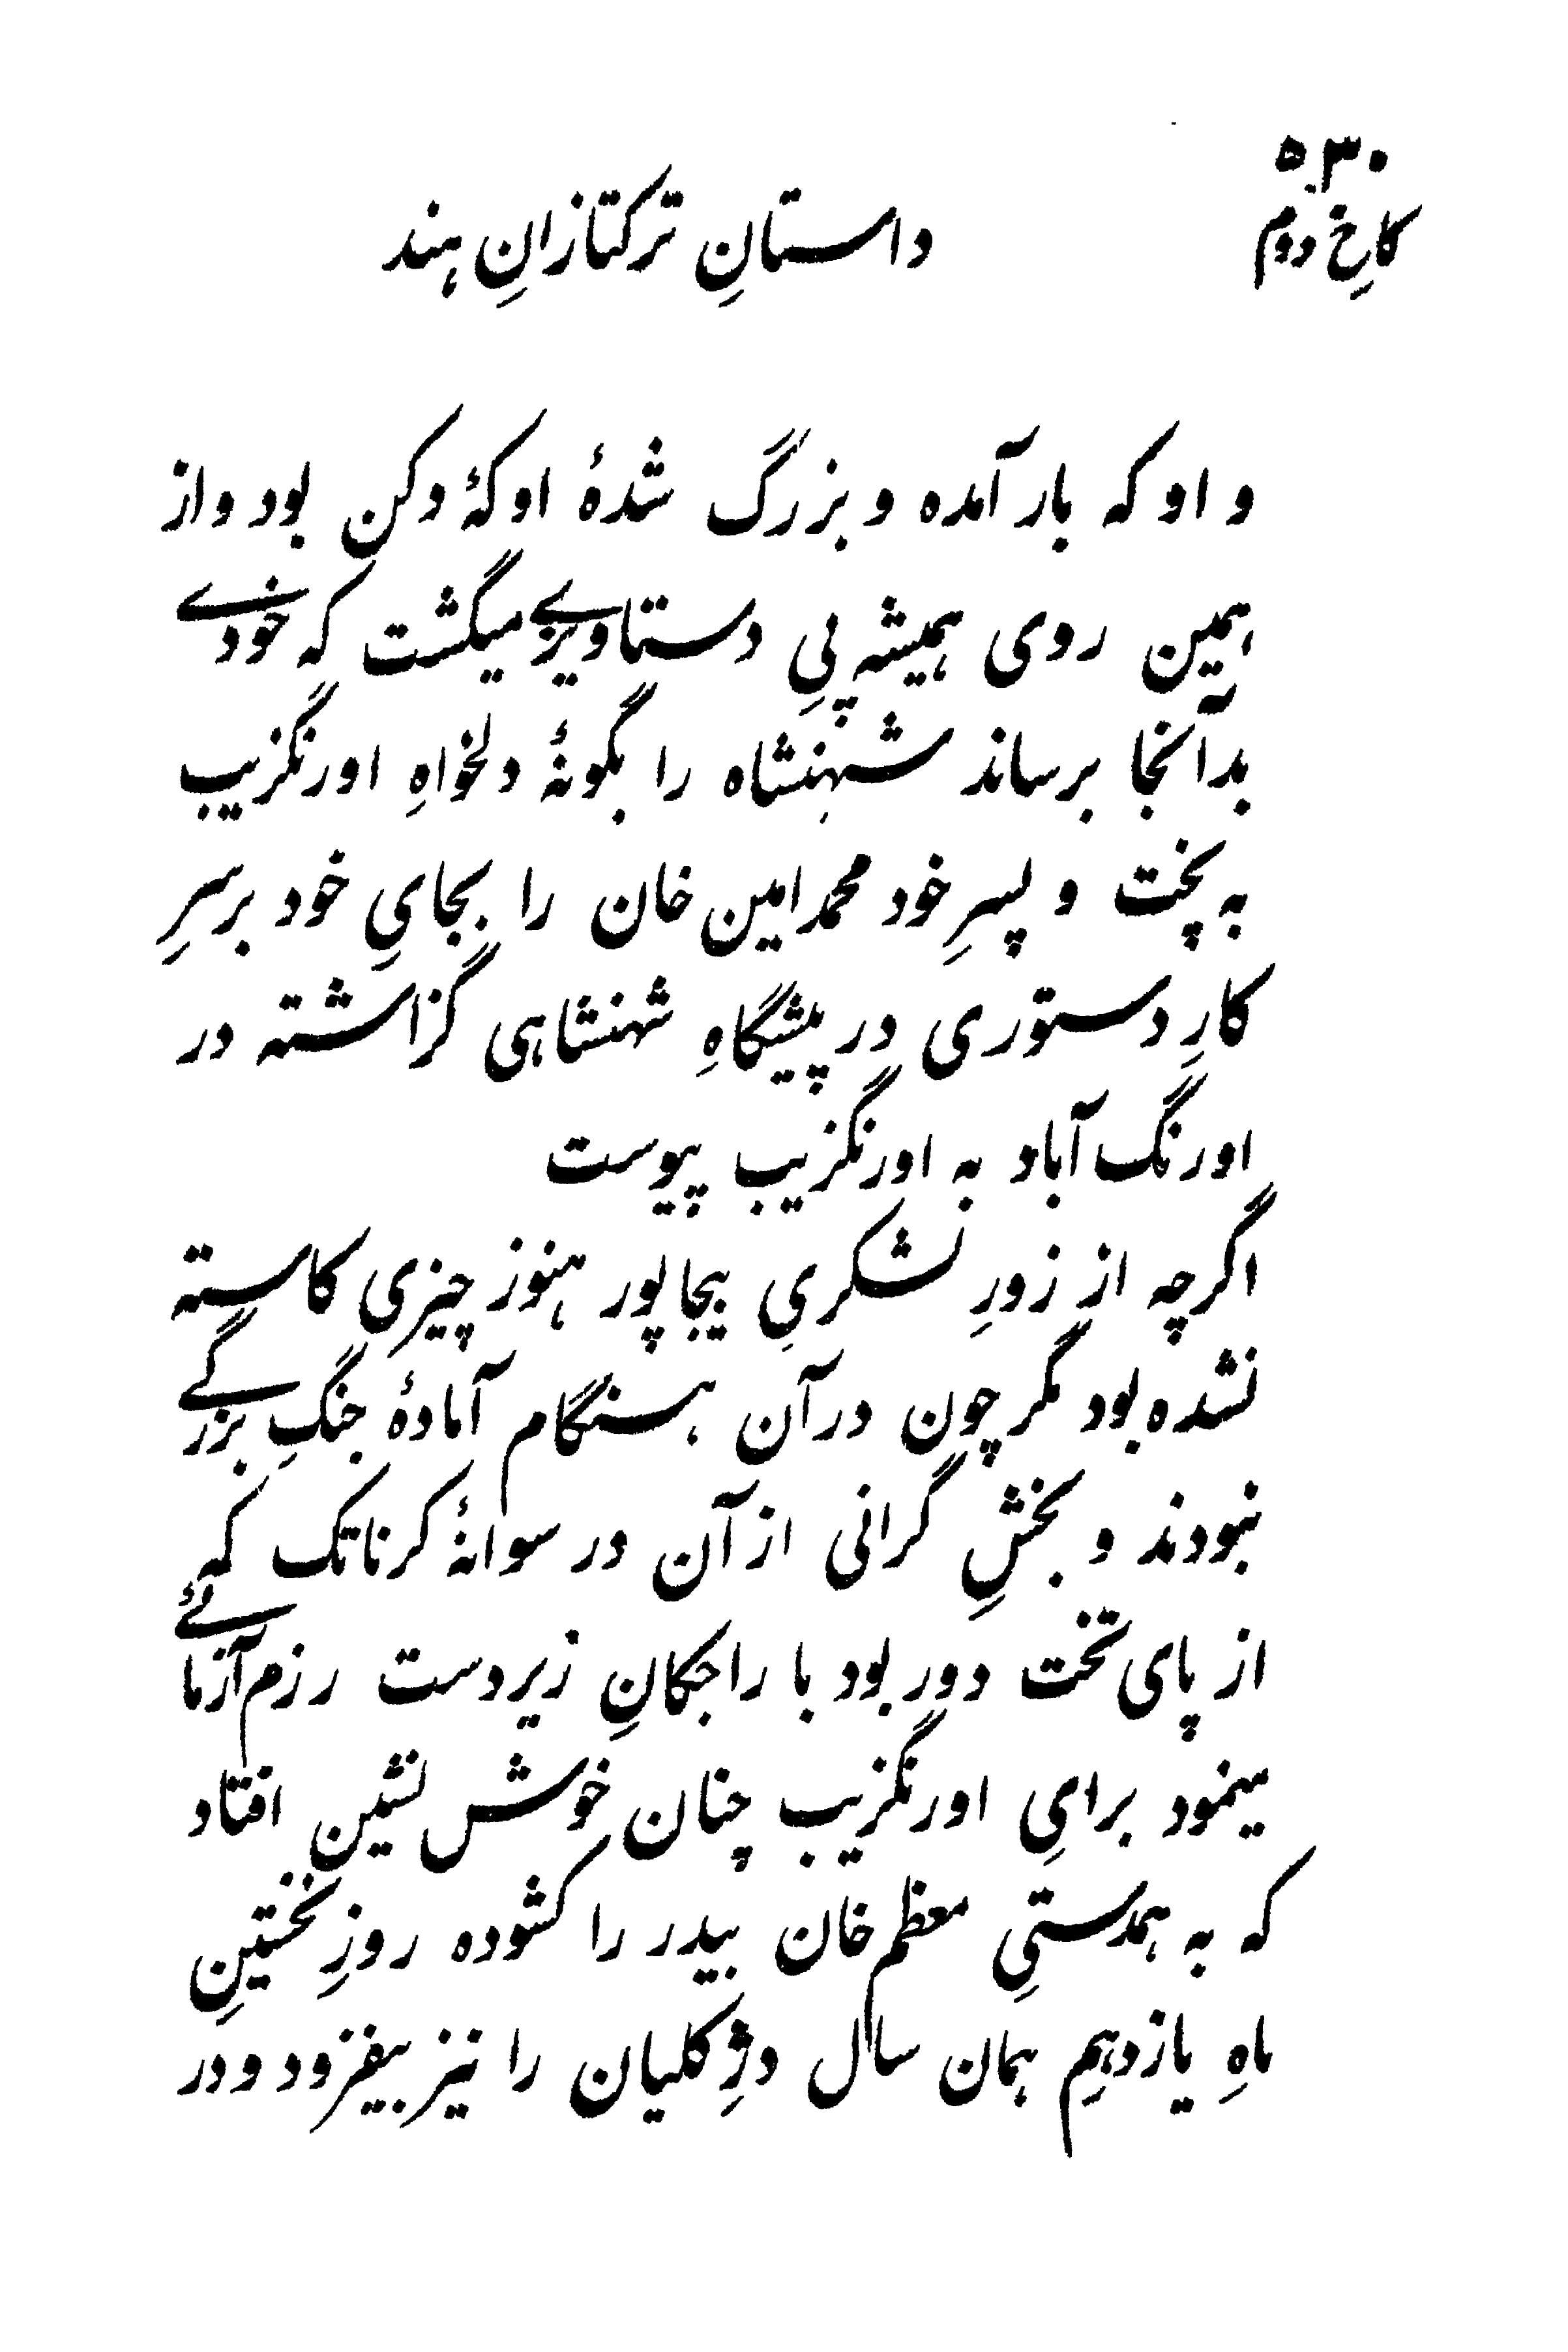 ۵۳۰
کاخِ دوم
داستانِ ترکتازانِ هند
و او که بار آمده و بزرگ شدهٔ او کهٔ دکن بود و از
همین روی همیشه پیِ دستاویزے میگشت که خودے
بدآنجا برساند شهنشاه را بگونهٔ دلخواهِ اورنگزیب
به پخت و پسرِ خود محمد امین خان را بجایِ خود بر سرِ
کارِ دستوری در پیشگاهِ شهنشاهی گزاشته در
اورنگ آباد به اورنگزیب پیوست
اگرچه از زورِ لشکریِ بیجاپور هنوز چیزی کاسته
نشده بود مگر چون در آن هنگام آمادهٔ جنگِ بزرگے
نبودند و بخشِ گرانی از آن در سوانهٔ کرناتک که
از پای تخت دور بود با راجگانِ زیردست رزم آزمائے
مینمود برایِ اورنگزیب چنان خوش نشین افتاد
که به همدستیِ معظم خان بیدر را کشوده روزِ نخستینِ
ماهِ یازدهمِ همان سال دژِ کلیان را نیز بیفزود و در